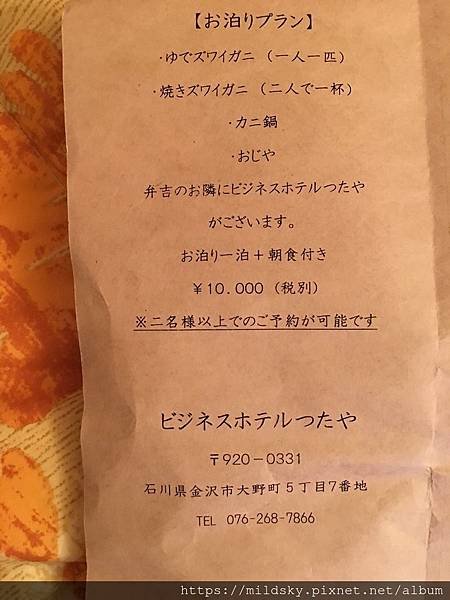 【お泊りプラン】
・ゆでズワイガニ （一人一匹）
・焼きズワイガニ （二人で一杯）
・カニ鍋
・おじや
弁吉のお隣にビジネスホテルつたや
がございます。
お泊り一泊＋朝食付き
￥10.000 （税別）
※二名様以上でのご予約が可能です
ビジネスホテルつたや
〒920－0331
石川県金沢市大野町５丁目7番地
TEL 076-268-7866
https://mildsky.pixnet.net/album